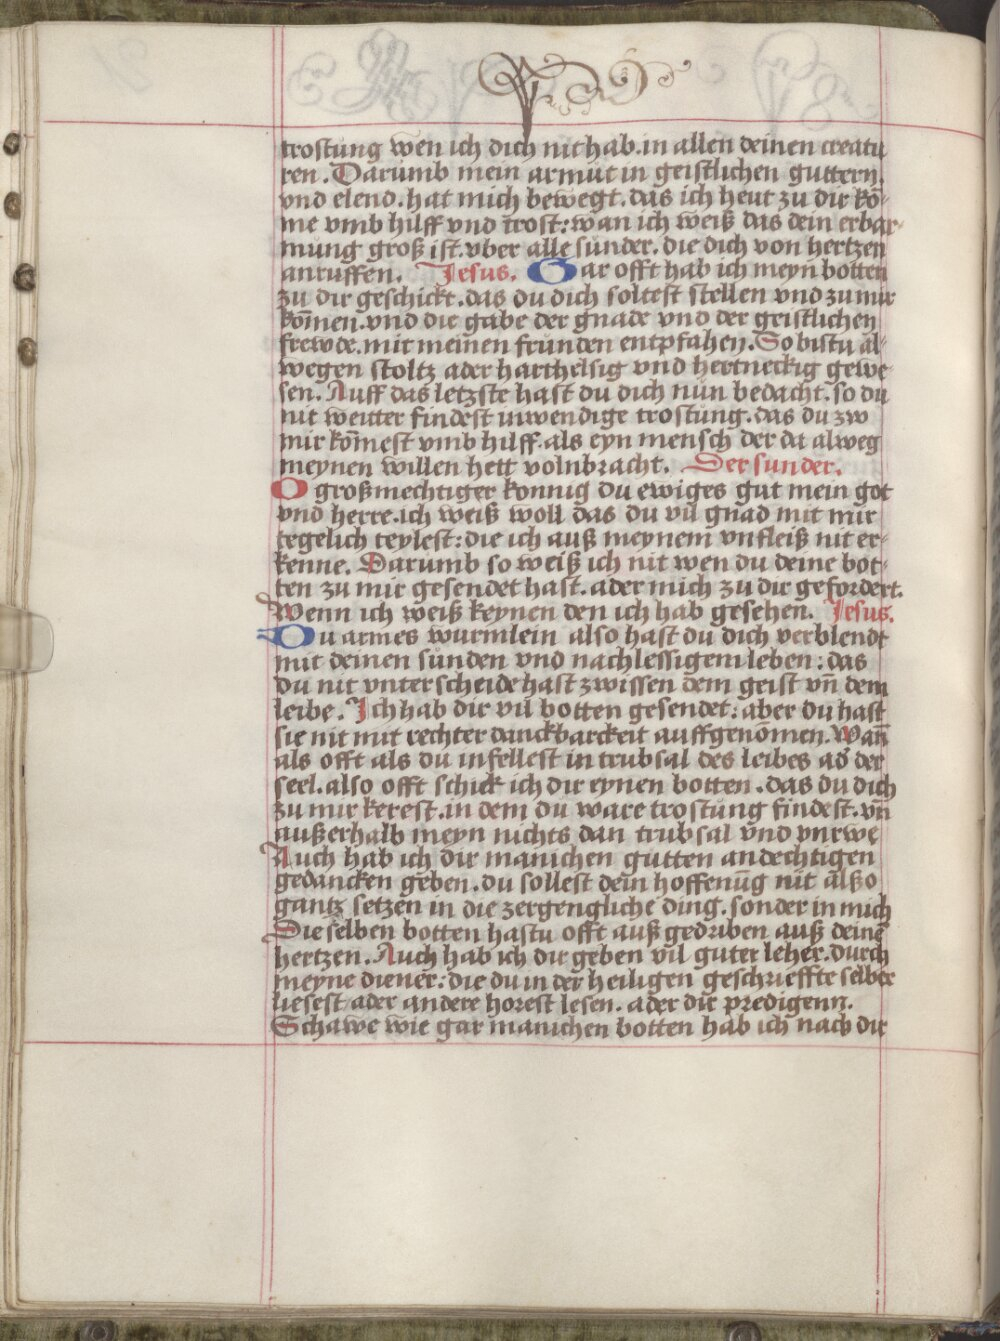 trostung wen ich dich nit hab. in allen deinen creatu
ren. Darumb mein armut in geistlichen guttern.
vnd elend. hat mich bewegt. das ich heut zu dir kō
me vmb hilff vnd trost: wan ich weiß das dein erbar-
mung groß ist. vber alle sunder. die dich von hertzen
anruffen. Jesus. Gar offt hab ich meyn botten
zu dir geschickt. das du dich soltest stellen vnd zu mir
kōmen. vnd die gabe der gnade vnd der geistlichen
frewde. mit meinen frunden entpfahen. So bistu al-
wegen stoltz ader harthelsig vnd hertneckig gewe-
sen. Auff das letzste hast du dich nun bedacht. so du
nit weitter findest inwendige trostung. das du zw
mir kōmest vmb hilff. als eyn mensch der da alweg
meynen willen hett volnbracht. Der sunder.
O großmechtiger konnig du ewiges gut mein got
vnd herre. ich weiß woll das du vil gnad mit mir
tegelich teylest: die ich auß meynem vnfleiß nit er-
kenne. Darumb so weiß ich nit wen du deine bot-
ten zu mir gesendet hast. ader mich zu dir gefordert.
Wenn ich weiß keynen den ich hab gesehen. Jesus.
Du armes wurmlein also hast du dich verblendt
mit deinen sunden vnd nachlessigem leben: das
du nit vnterscheide hast zwissen dem geist vn̄ dem
leibe. Ich hab dir vil botten gesendet: aber du hast
sie nit mit rechter danckbarckeit auffgenōmen. Wan̄
als offt als du infellest in trubsal des leibes ad' der
seel. also offt schick ich dir eynen botten. das du dich
zu mir kerest. in dem du ware trostung findest. vn̄
außerhalb meyn nichts dan trubsal vnd vnrwe
Auch hab ich dir manichen gutten andechtigen
gedancken geben. du sollest dein hoffenūg nit alßo
gantz setzen in die zergengliche ding. sonder in mich
Die selben botten hastu offt auß gedriben auß deinē
hertzen. Auch hab ich dir geben vil guter leher. durch
meyne diener: die du in der heiligen geschrieffte selber
liesest ader andere horest lesen. ader dir predigenn.
Schawe wie gar manichen botten hab ich nach dir